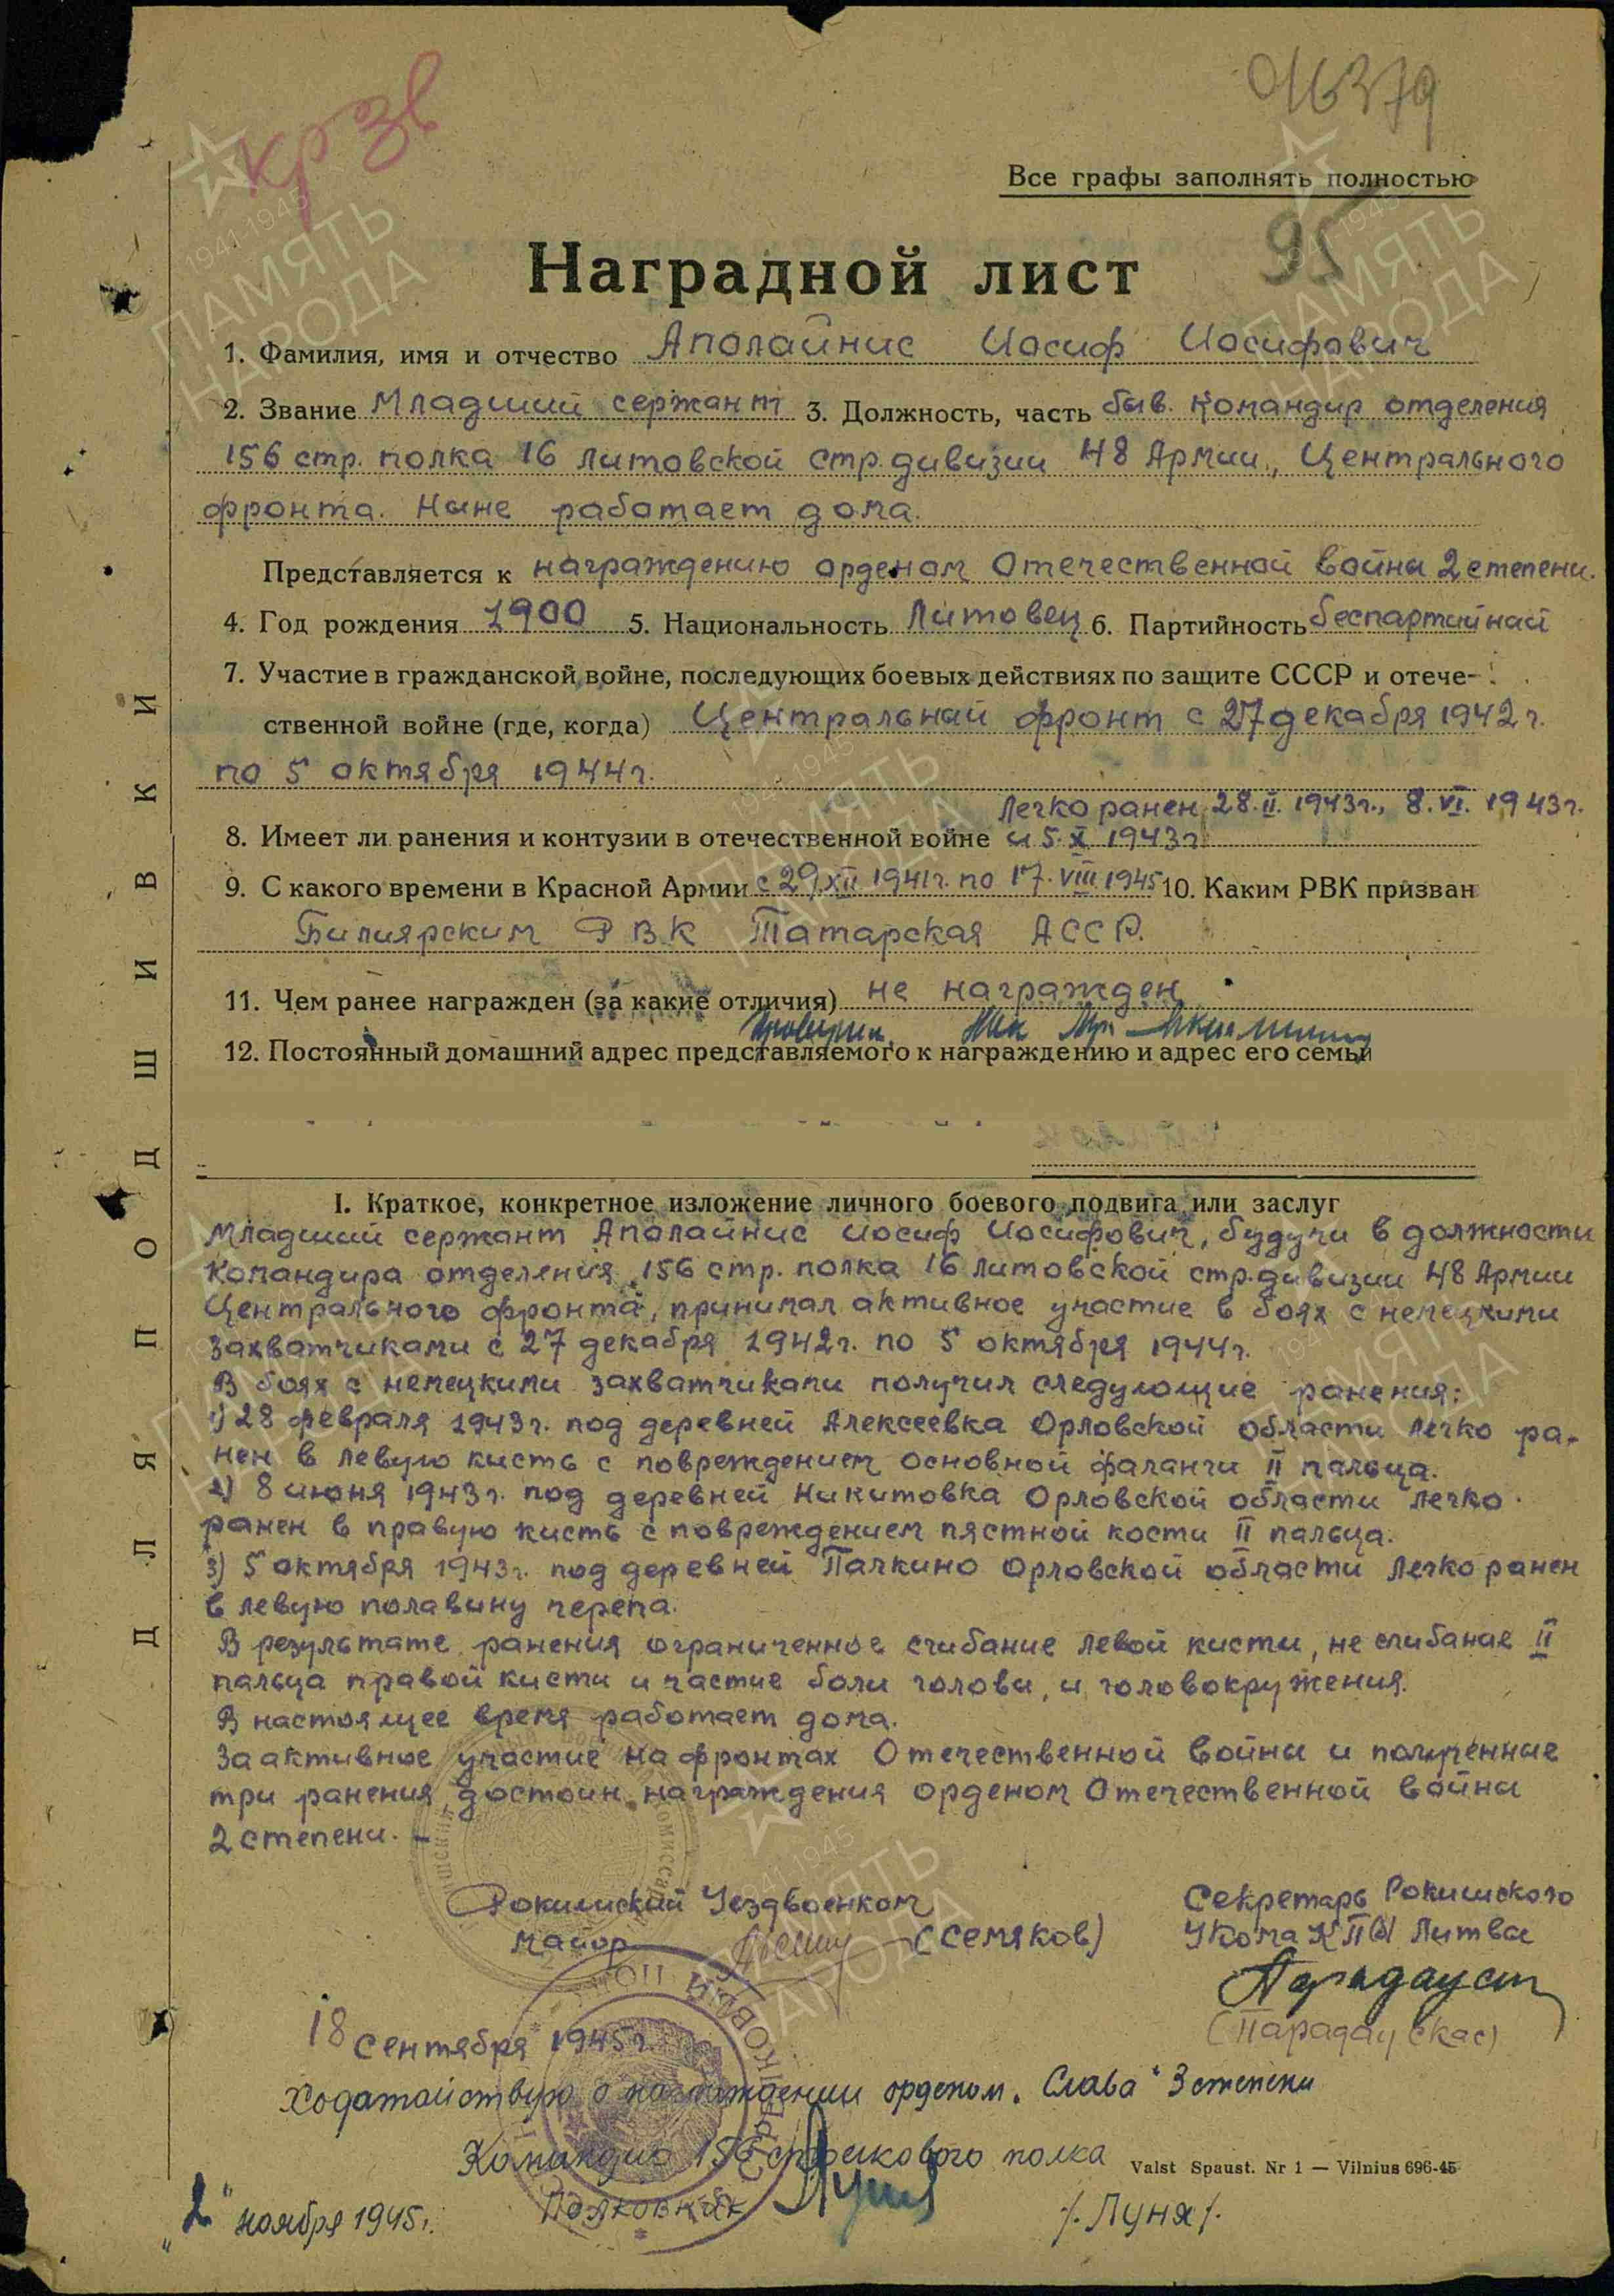 КрЗв
016379
Все графы заполнять полностью
95
Наградной лист
1. Фамилия, имя и отчество Аполайнис Иосиф Иосифович
2. Звание Младший сержант 3. Должность, часть быв. Командир отделения
156 стр. полка 16 литовской стр. дивизии 48 Армии, Центрального
фронта. Ныне работает дома.
Представляется к награждению орденом Отечественной войны 2 степени.
4. Год рождения 1900 5. Национальность Литовец 6. Партийность беспартийный
7. Участие в гражданской войне, последующих боевых действиях по защите СССР и отече-
ственной войне (где, когда) Центральный фронт с 27 декабря 1942 г.
по 5 октября 1944 г.
Легко ранен 28. II. 1943 г., 8. VI. 1943 г.
8. Имеет ли ранения и контузии в отечественной войне и 5. X 1943 г.
9. С какого времени в Красной Армии с 29. XII 1941 г. по 17. VIII 1945 10. Каким РВК призван
Билиярским РВК Татарская АССР.
11. Чем ранее награжден (за какие отличия) не награжден
12. Постоянный домашний адрес представляемого к награждению и адрес его семьи
I. Краткое, конкретное изложение личного боевого подвига или заслуг
Младший сержант Аполайнис Иосиф Иосифович, будучи в должности
командира отделения 156 стр. полка 16 литовской стр. дивизии 48 Армии
Центрального фронта, принимал активное участие в боях с немецкими
захватчиками с 27 декабря 1942 г. по 5 октября 1944 г.
В боях с немецкими захватчиками получил следующие ранения:
1) 28 февраля 1943 г. под деревней Алексеевка Орловской области легко ра-
нен в левую кисть с повреждением основной фаланги II пальца.
2) 8 июня 1943 г. под деревней Никитовка Орловской области легко
ранен в правую кисть с повреждением пястной кости II пальца.
3) 5 октября 1943 г. под деревней Палкино Орловской области легко ранен
в левую полавину черепа.
В результате ранения ограниченное сгибание левой кисти, не сгибание II
пальца правой кисти и частые боли головы, и головокружения.
В настоящее время работает дома.
За активное участие на фронтах Отечественной войны и полученные
три ранения достоин награждения орденом Отечественной войны
2 степени. –
Рокишский Уездвоенком
майор (Семяков)
Секретарь Рокишского
Укома КП(б) Литвы
(Парадаускас)
18 сентября 1945 г.
Ходатайствую о награждении орденом „Слава" 3 степени
Командир 156 стрелкового полка
Полковник /Луня/.
Valst Spaust. Nr 1 — Vilnius 696-45
„2" ноября 1945 г.
ДЛЯ ПОДШИВКИ
1941-1945
ПАМЯТЬ
НАРОДА